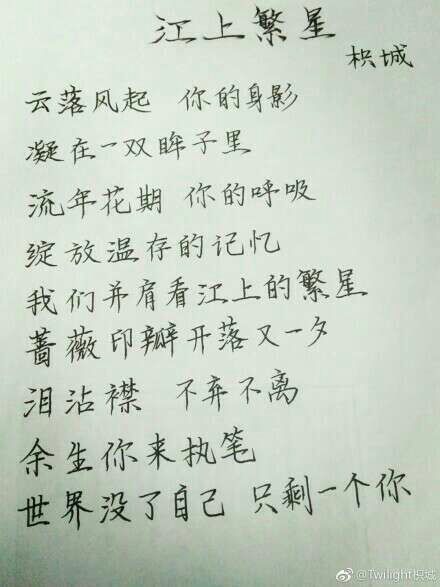 江上繁星
枳城
云落风起 你的身影
凝在一双眸子里
流年花期 你的呼吸
绽放温存的记忆
我们并肩看江上的繁星
蔷薇印瓣开落又一夕
泪沾襟 不弃不离
余生你来执笔
世界没了自己 只剩一个你
@Twilight枳城